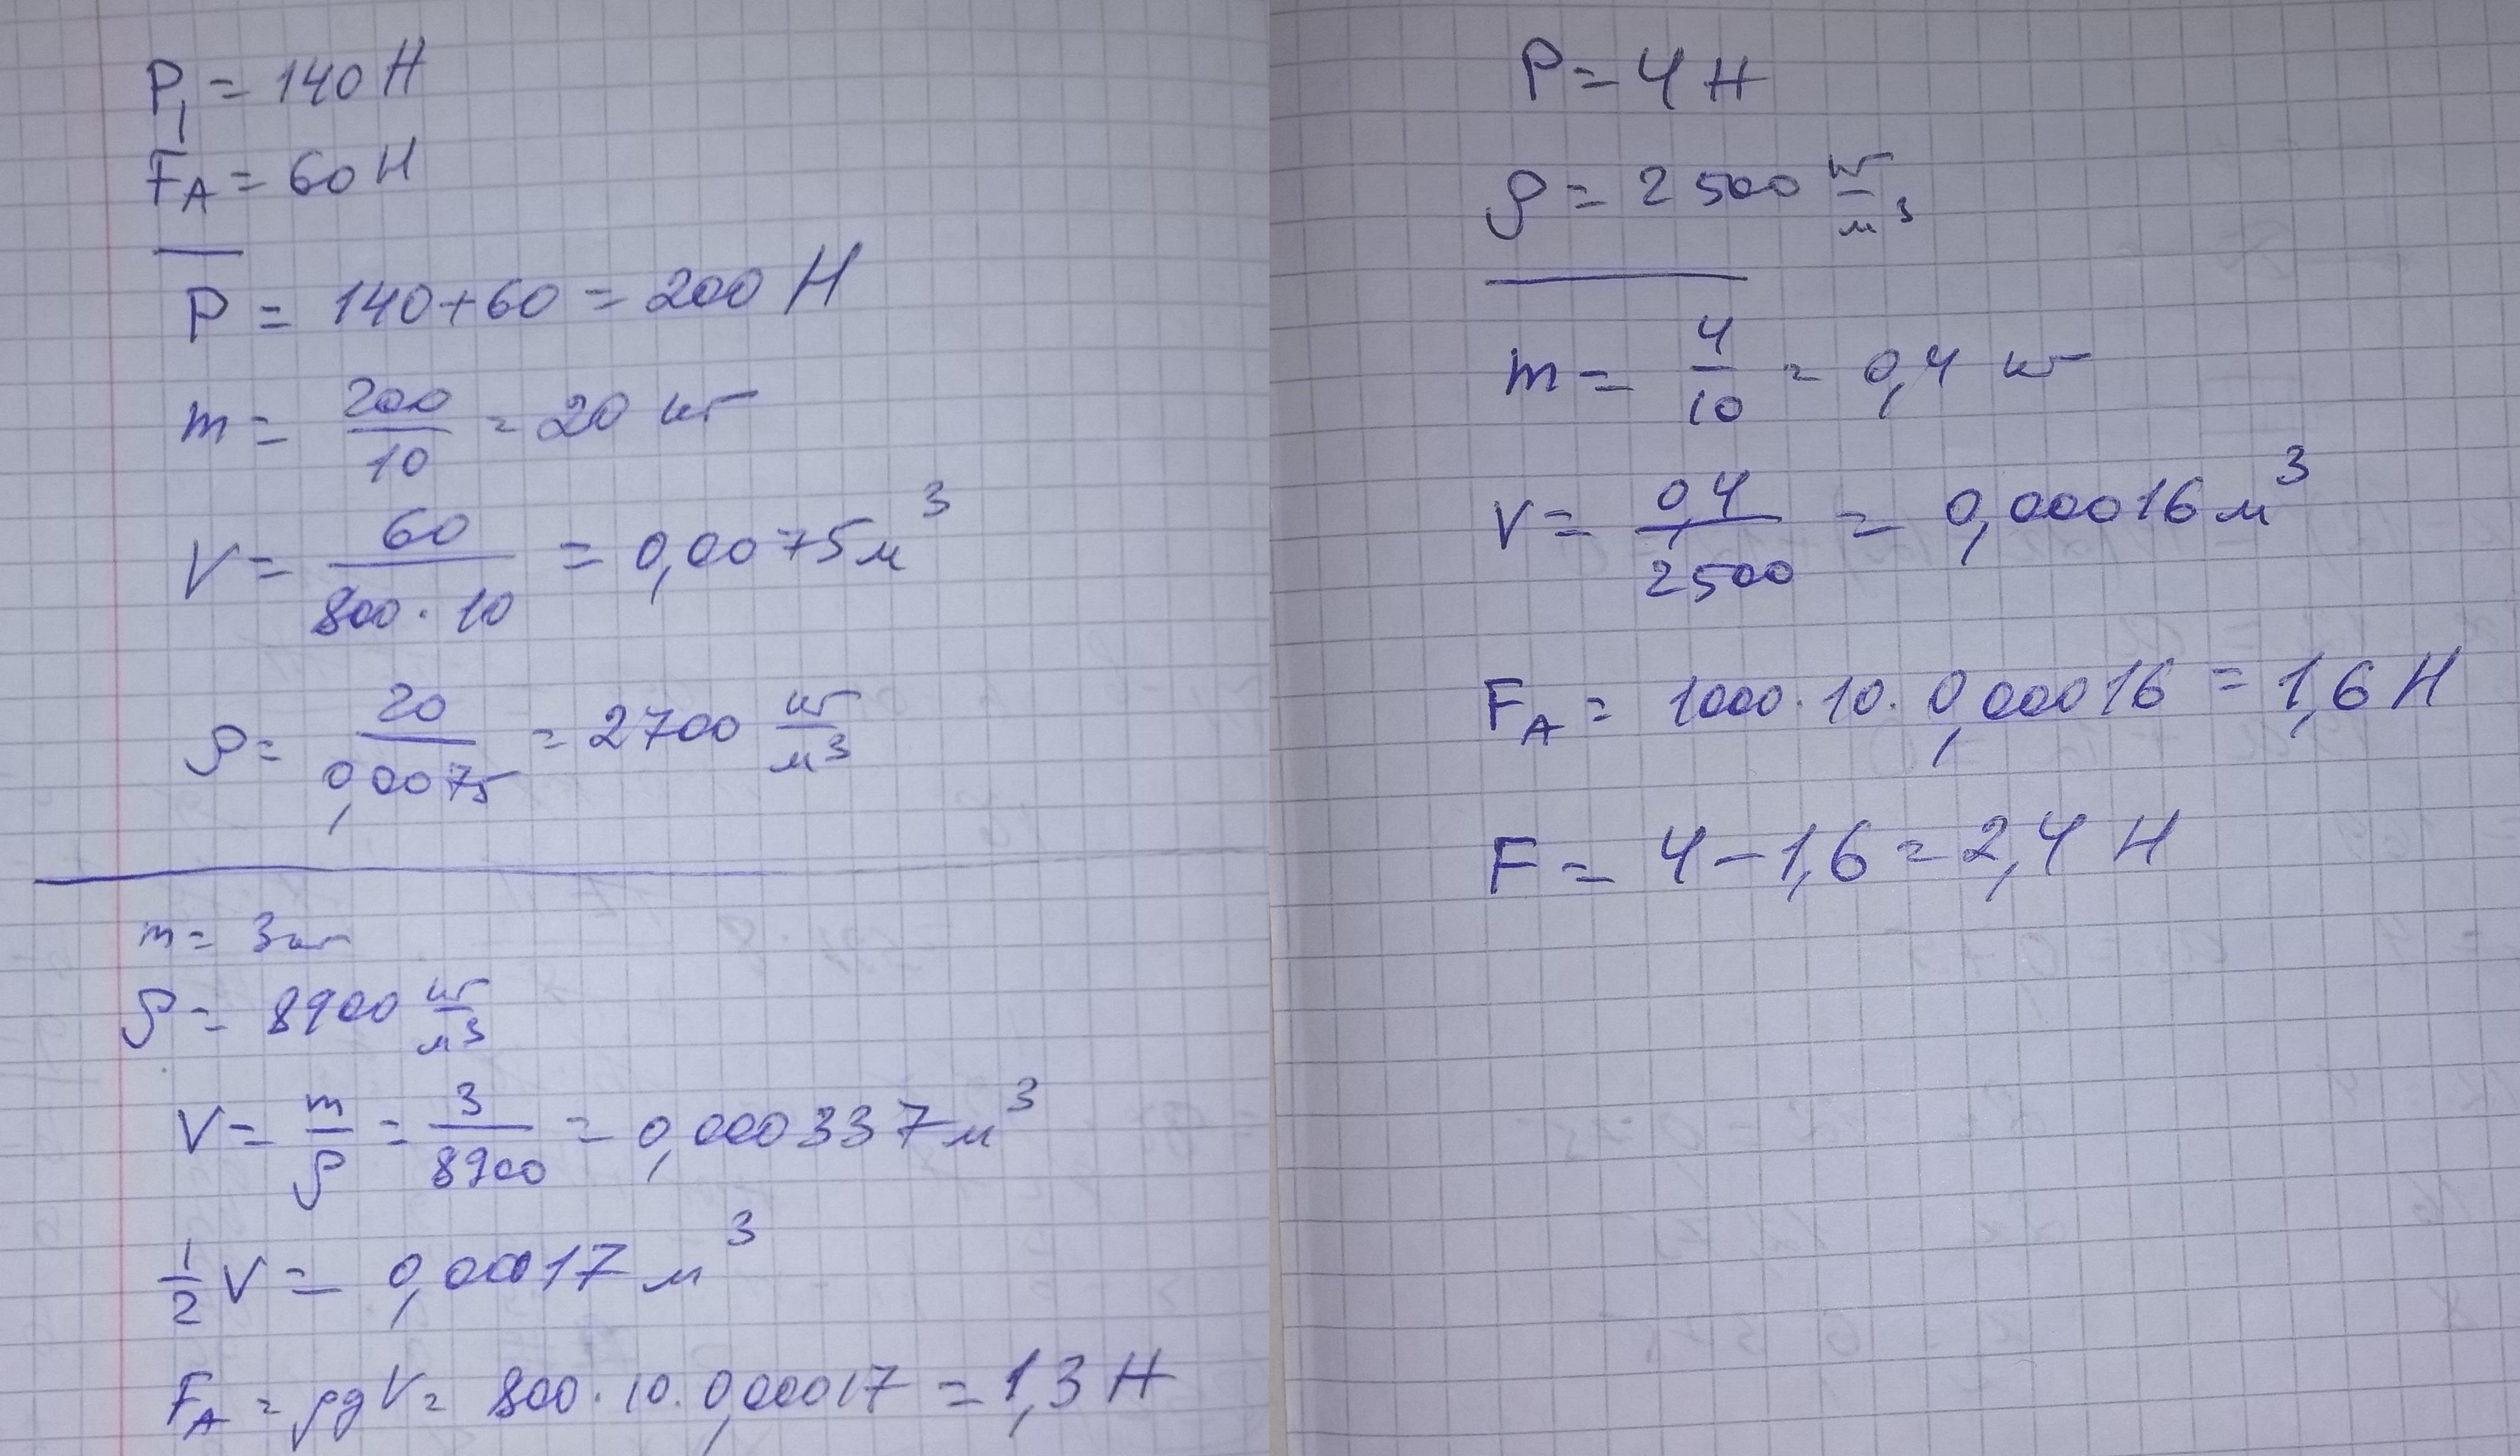 P₁ = 140 Н
F_A = 60 Н
P = 140 + 60 = 200 Н
m = 200/10 = 20 кг
V = 60/(800 · 10) = 0,0075 м³
ρ = 20/0,0075 = 2700 кг/м³
m = 3 кг
ρ = 8900 кг/м³
V = m/ρ = 3/8900 = 0,000337 м³
1/2 V = 0,00017 м³
F_A = ρgV = 800 · 10 · 0,00017 = 1,3 Н
P = 4 Н
ρ = 2500 кг/м³
m = 4/10 = 0,4 кг
V = 0,4/2500 = 0,00016 м³
F_A = 1000 · 10 · 0,00016 = 1,6 Н
F = 4 − 1,6 = 2,4 Н